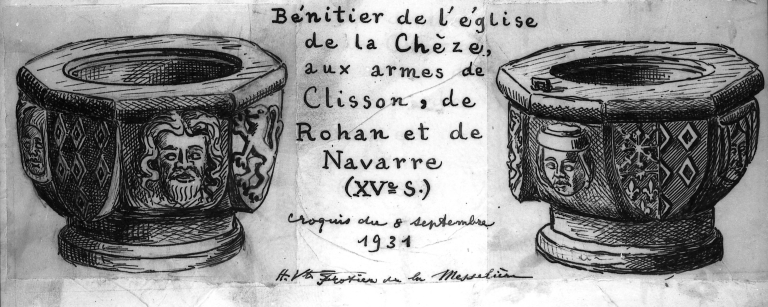 Bénitier de l'église
de la Chèze,
aux armes de
Clisson, de
Rohan et de
Navarre
(XVe S.)
croquis du 8 septembre
1931
H. Vte Frotier de la Messelière